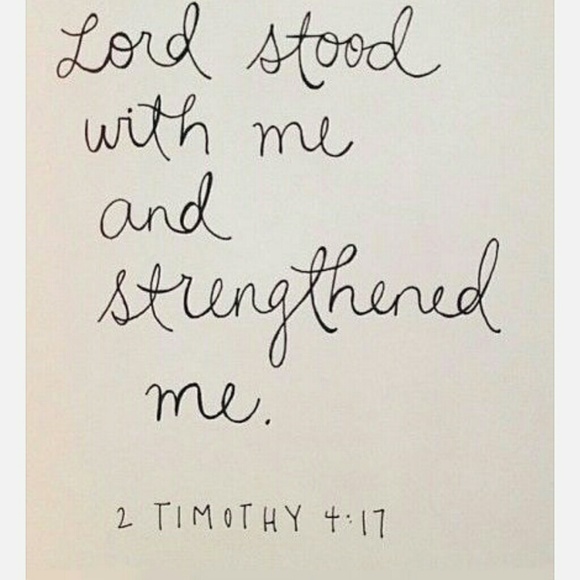 Lord stood
with me
and
strengthened
me.
2 TIMOTHY 4:17